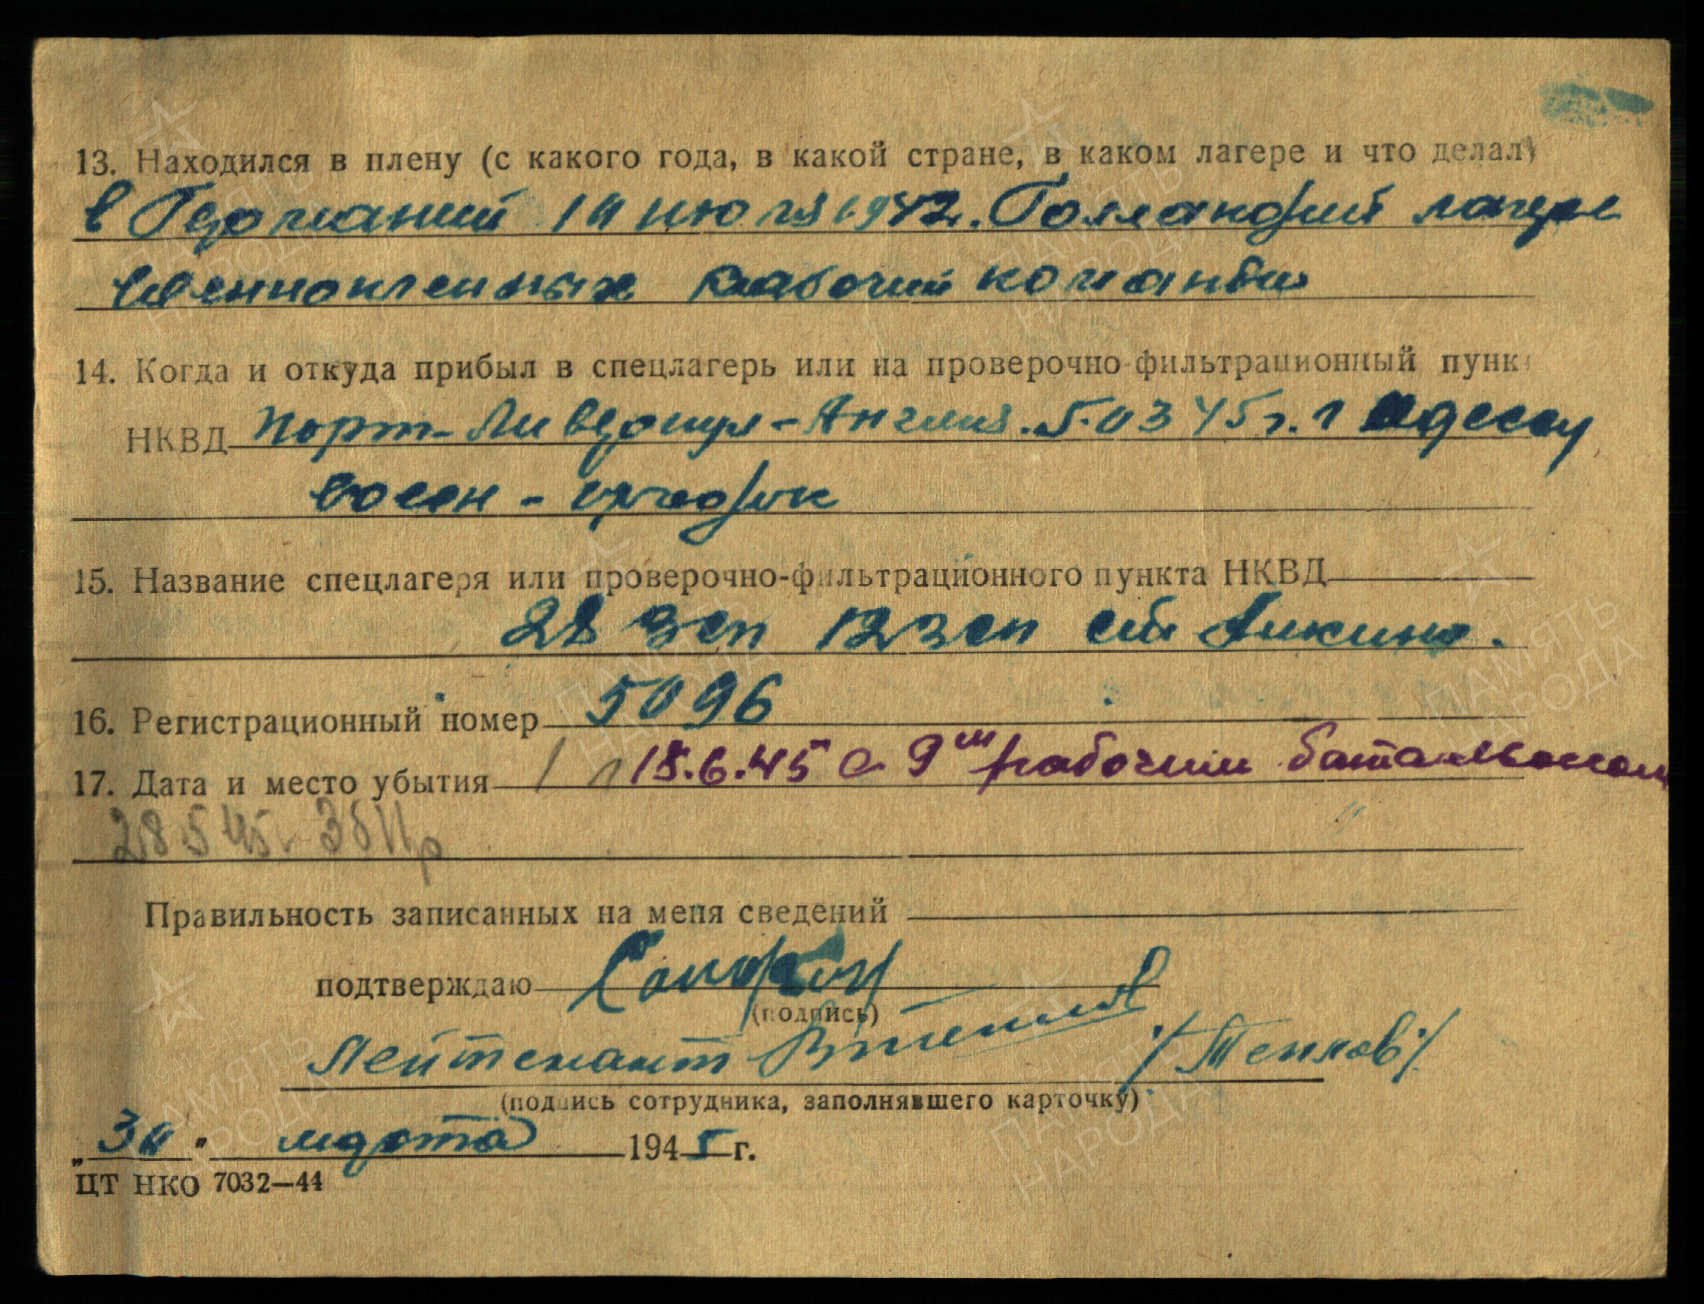 13. Находился в плену (с какого года, в какой стране, в каком лагере и что делал)
в Германии июля 1942. Голландии лагере
военнопленных рабочий команды
14. Когда и откуда прибыл в спецлагерь или на проверочно-фильтрационный пунк
НКВД Порт-Ливерпул-Англия. 5.03 45 г. г Одессу
15. Название спецлагеря или проверочно-фильтрационного пункта НКВД
28 зсп 12 зсп ст Алкино.
16. Регистрационный номер 5096
17. Дата и место убытия 18.6.45 с 9ым рабочим батальоном
28 5 45г
Правильность записанных на меня сведений
подтверждаю
(подпись)
Лейтенант /Теплов/
(подпись сотрудника, заполнявшего карточку)
„30" марта 1945 г.
ЦТ НКО 7032—44
ПАМЯТЬ НАРОДА